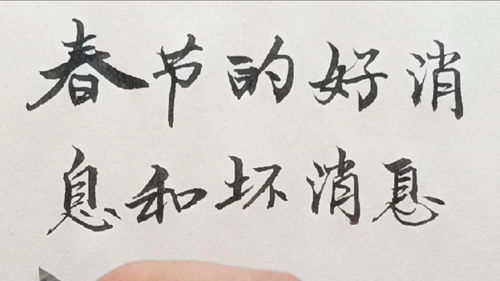 春节的好消
息和坏消息